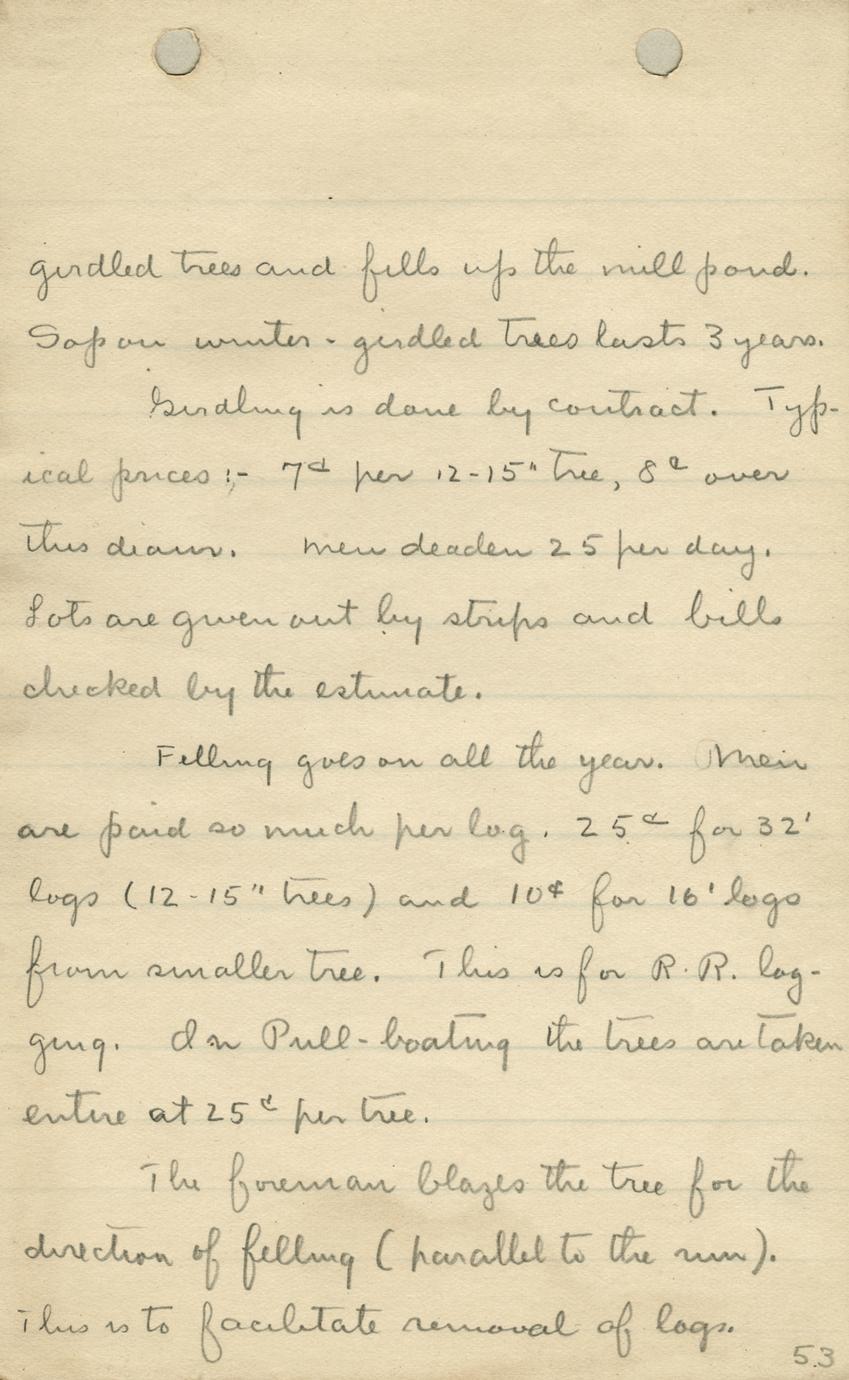 girdled trees and fills up the mill pond.
Sap on winter-girdled trees lasts 3 years.
Girdling is done by contract. Typ-
ical prices:- 7¢ per 12-15" tree, 8¢ over
this diam. Men deaden 25 per day.
Lots are given out by strips and bills
checked by the estimate.
Felling goes on all the year. Men
are paid so much per log. 25¢ for 32'
logs (12-15" trees) and 10¢ for 16' logs
from smaller tree. This is for R.R. log-
ging. In Pull-boating the trees are taken
entire at 25¢ per tree.
The foreman blazes the tree for the
direction of felling (parallel to the run).
This is to facilitate removal of logs.
53